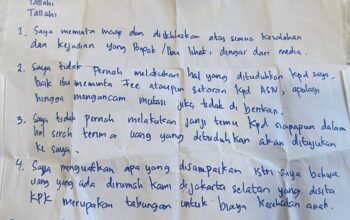 Dellahi
Tallahi
1. Saya meminta maap dan diikhlaskan atas semua kesalahan
dan kejadian yang Bapak/Ibu lihat, dengar dari media.
2. Saya tidak pernah melakukan hal yang dituduhkan kpd saya
baik itu meminta Fee ataupun setoran kpd ASN, apalagi
hingga mengancam mutasi jika tidak di berikan.
3. Saya tidak pernah melakukan janji temu kpd siapapun dalam
hal serah terima uang yang dituduhkan akan ditujukan
ke saya.
4. Saya menguatkan apa yang disampaikan istri saya bahwa
uang yang ada dirumah kami dijakarta selatan yang disita
KPK merupakan tabungan untuk biaya kesehatan anak.